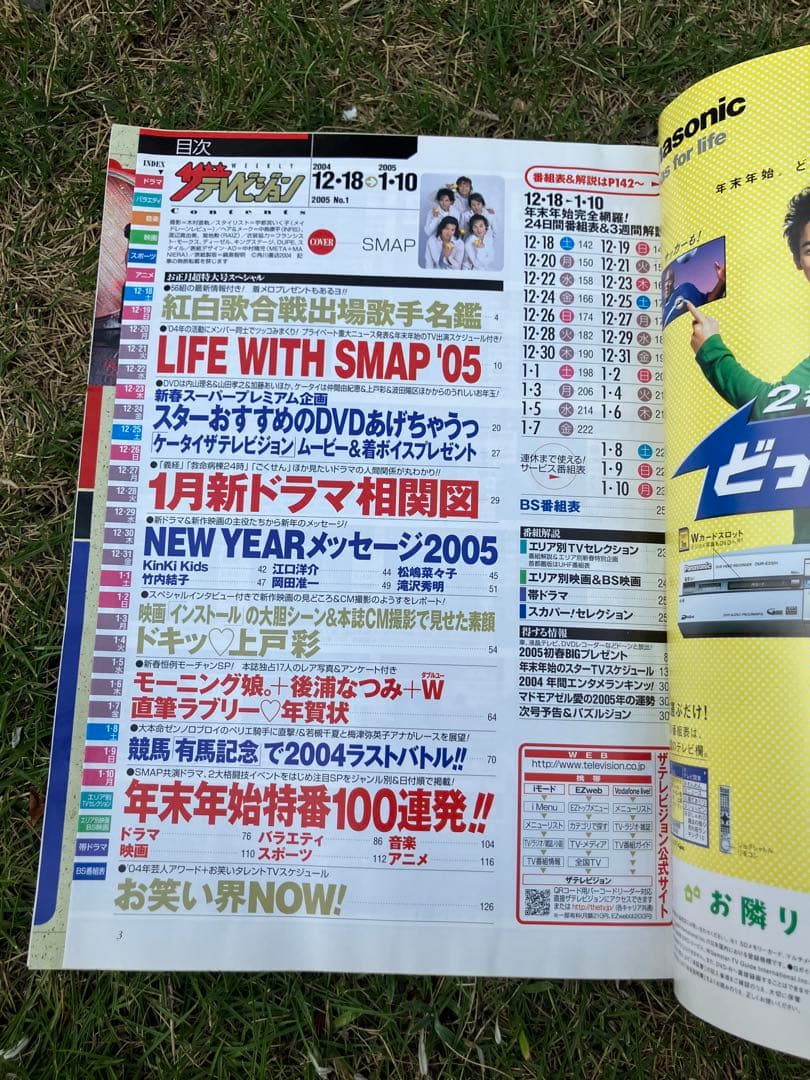 目次
INDEX
WEEKLY
ザテレビジョン
Contents
2004
2005
12・18→1・10
2005 No.1
COVER
SMAP
ドラマ
バラエティ
音楽
映画
スポーツ
アニメ
12・18 土
12・19 日
12・20 月
12・21 火
12・22 水
12・23 木
12・24 金
12・25 土
12・26 日
12・27 月
12・28 火
12・29 水
12・30 木
12・31 金
1・1 土
1・2 日
1・3 月
1・4 火
1・5 水
1・6 木
1・7 金
1・8 土
1・9 日
1・10 月
エリア別TVセレクション
エリア別映画BS映画
帯ドラマ
BS番組表
お正月超特大号スペシャル
●56組の最新情報付き! 着メロプレゼントもあるヨ!!
紅白歌合戦出場歌手名鑑 4
●'04年の活動にメンバー同士でツッコみまくり! プライベート重大ニュース発表&年末年始のTV出演スケジュール付き!
LIFE WITH SMAP '05 10
●DVDは内山理名&山田孝之&加藤あいほか、ケータイは仲間由紀恵&上戸彩&波田陽区ほかからのうれしいお年玉!
新春スーパープレミアム企画
スターおすすめのDVDあげちゃうっ 20
ケータイザテレビジョン ムービー&着ボイスプレゼント 27
●「義経」「救命病棟24時」「ごくせん」ほか見たいドラマの人間関係が丸わかり!!
1月新ドラマ相関図 29
●新ドラマ&新作映画の主役たちから新年のメッセージ!
NEW YEARメッセージ2005
KinKi Kids 42 江口洋介 44 松嶋菜々子 45
竹内結子 47 岡田准一 49 滝沢秀明 51
●スペシャルインタビュー付きで新作の見どころ&CM撮影のようすをレポート!
映画「インストール」の大胆シーン&本誌CM撮影で見せた素顔
ドキッ♡上戸彩 54
●新春恒例モーチャンSP! 本誌独占17人のレア写真&アンケート付き
モーニング娘。+後浦なつみ+W
ダブルユー
直筆ラブリー♡年賀状 64
●大本命ゼンノロブロイのペリエ騎手に直撃!&若槻千夏と梅津弥英子アナがレースを展望!
競馬「有馬記念」で2004ラストバトル!! 70
●SMAP共演ドラマ、2大格闘技イベントをはじめ注目SPをジャンル別&日付順で掲載!
年末年始特番100連発!!
ドラマ 76 バラエティ 86 音楽 104
映画 110 スポーツ 112 アニメ 116
●'04年芸人アワード+お笑いタレントTVスケジュール
お笑い界NOW! 126
3
番組表&解説はP142〜
12・18→1・10
年末年始完全網羅!
24日間番組表&3週間解
12・18 土 142 12・19 日
12・20 月 150 12・21 火
12・22 水 158 12・23 木
12・24 金 166 12・25 土
12・26 日 174 12・27 月
12・28 火 182 12・29 水
12・30 木 190 12・31 金
1・1 土 198 1・2 日
1・3 月 206 1・4 火
1・5 水 214 1・6 木
1・7 金 222
連休まで使える!
サービス番組表
1・8 土
1・9 日
1・10 月
BS番組表
番組解説
エリア別TVセレクション
エリア別映画&BS映画
帯ドラマ
スカパー!セレクション
得する情報
車、液晶テレビ、DVDレコーダーなどドーンと放出!
2005初春BIGプレゼント
年末年始のスターTVスケジュール
2004 年間エンタメランキンッ!
マドモアゼル愛の2005年の運勢
次号予告&パズルジョン
WEB
http://www.television.co.jp
携帯
iモード EZweb Vodafone live!
i Menu EZトップメニュー メニューリスト
メニューリスト カテゴリで探す TV・ラジオ・雑誌
TV/ラジオ/雑誌/小説 TV・メディア TV番組ガイド
TV番組情報 全国TV
ザテレビジョン
QRコード用バーコードリーダー対応
直接ザテレビジョンにアクセスできます
または http://thetv.jp/ (各キャリア共通)
ザテレビジョン公式サイト
asonic
s for life
年末年始、ど
どっ
Wカードスロット
Panasonic
選ぶだけ!
お隣り